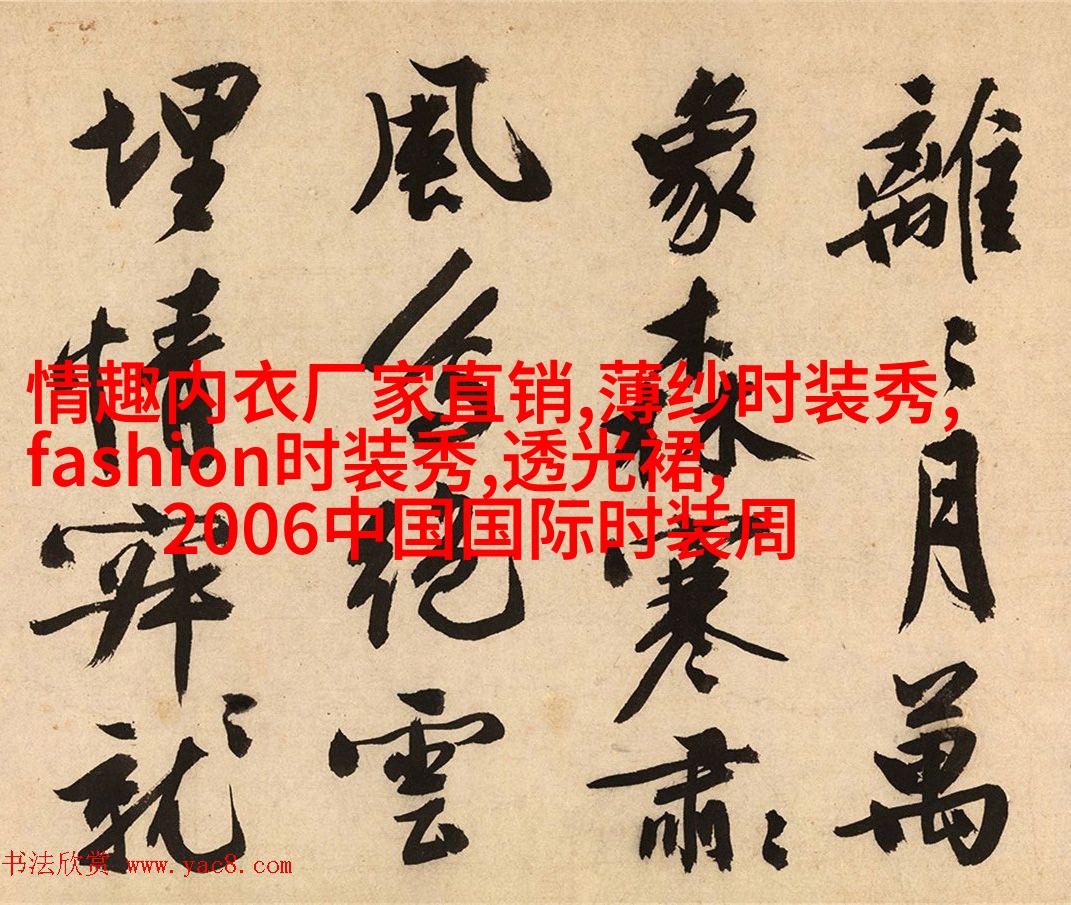 離〻月萬
象森寒肅〻
風絕雲
埋情就〻
情趣内衣厂家直销,薄纱时装秀,
fashion时装秀,透光裙,
2006中国国际时装周
书法欣赏 www.yac8.com